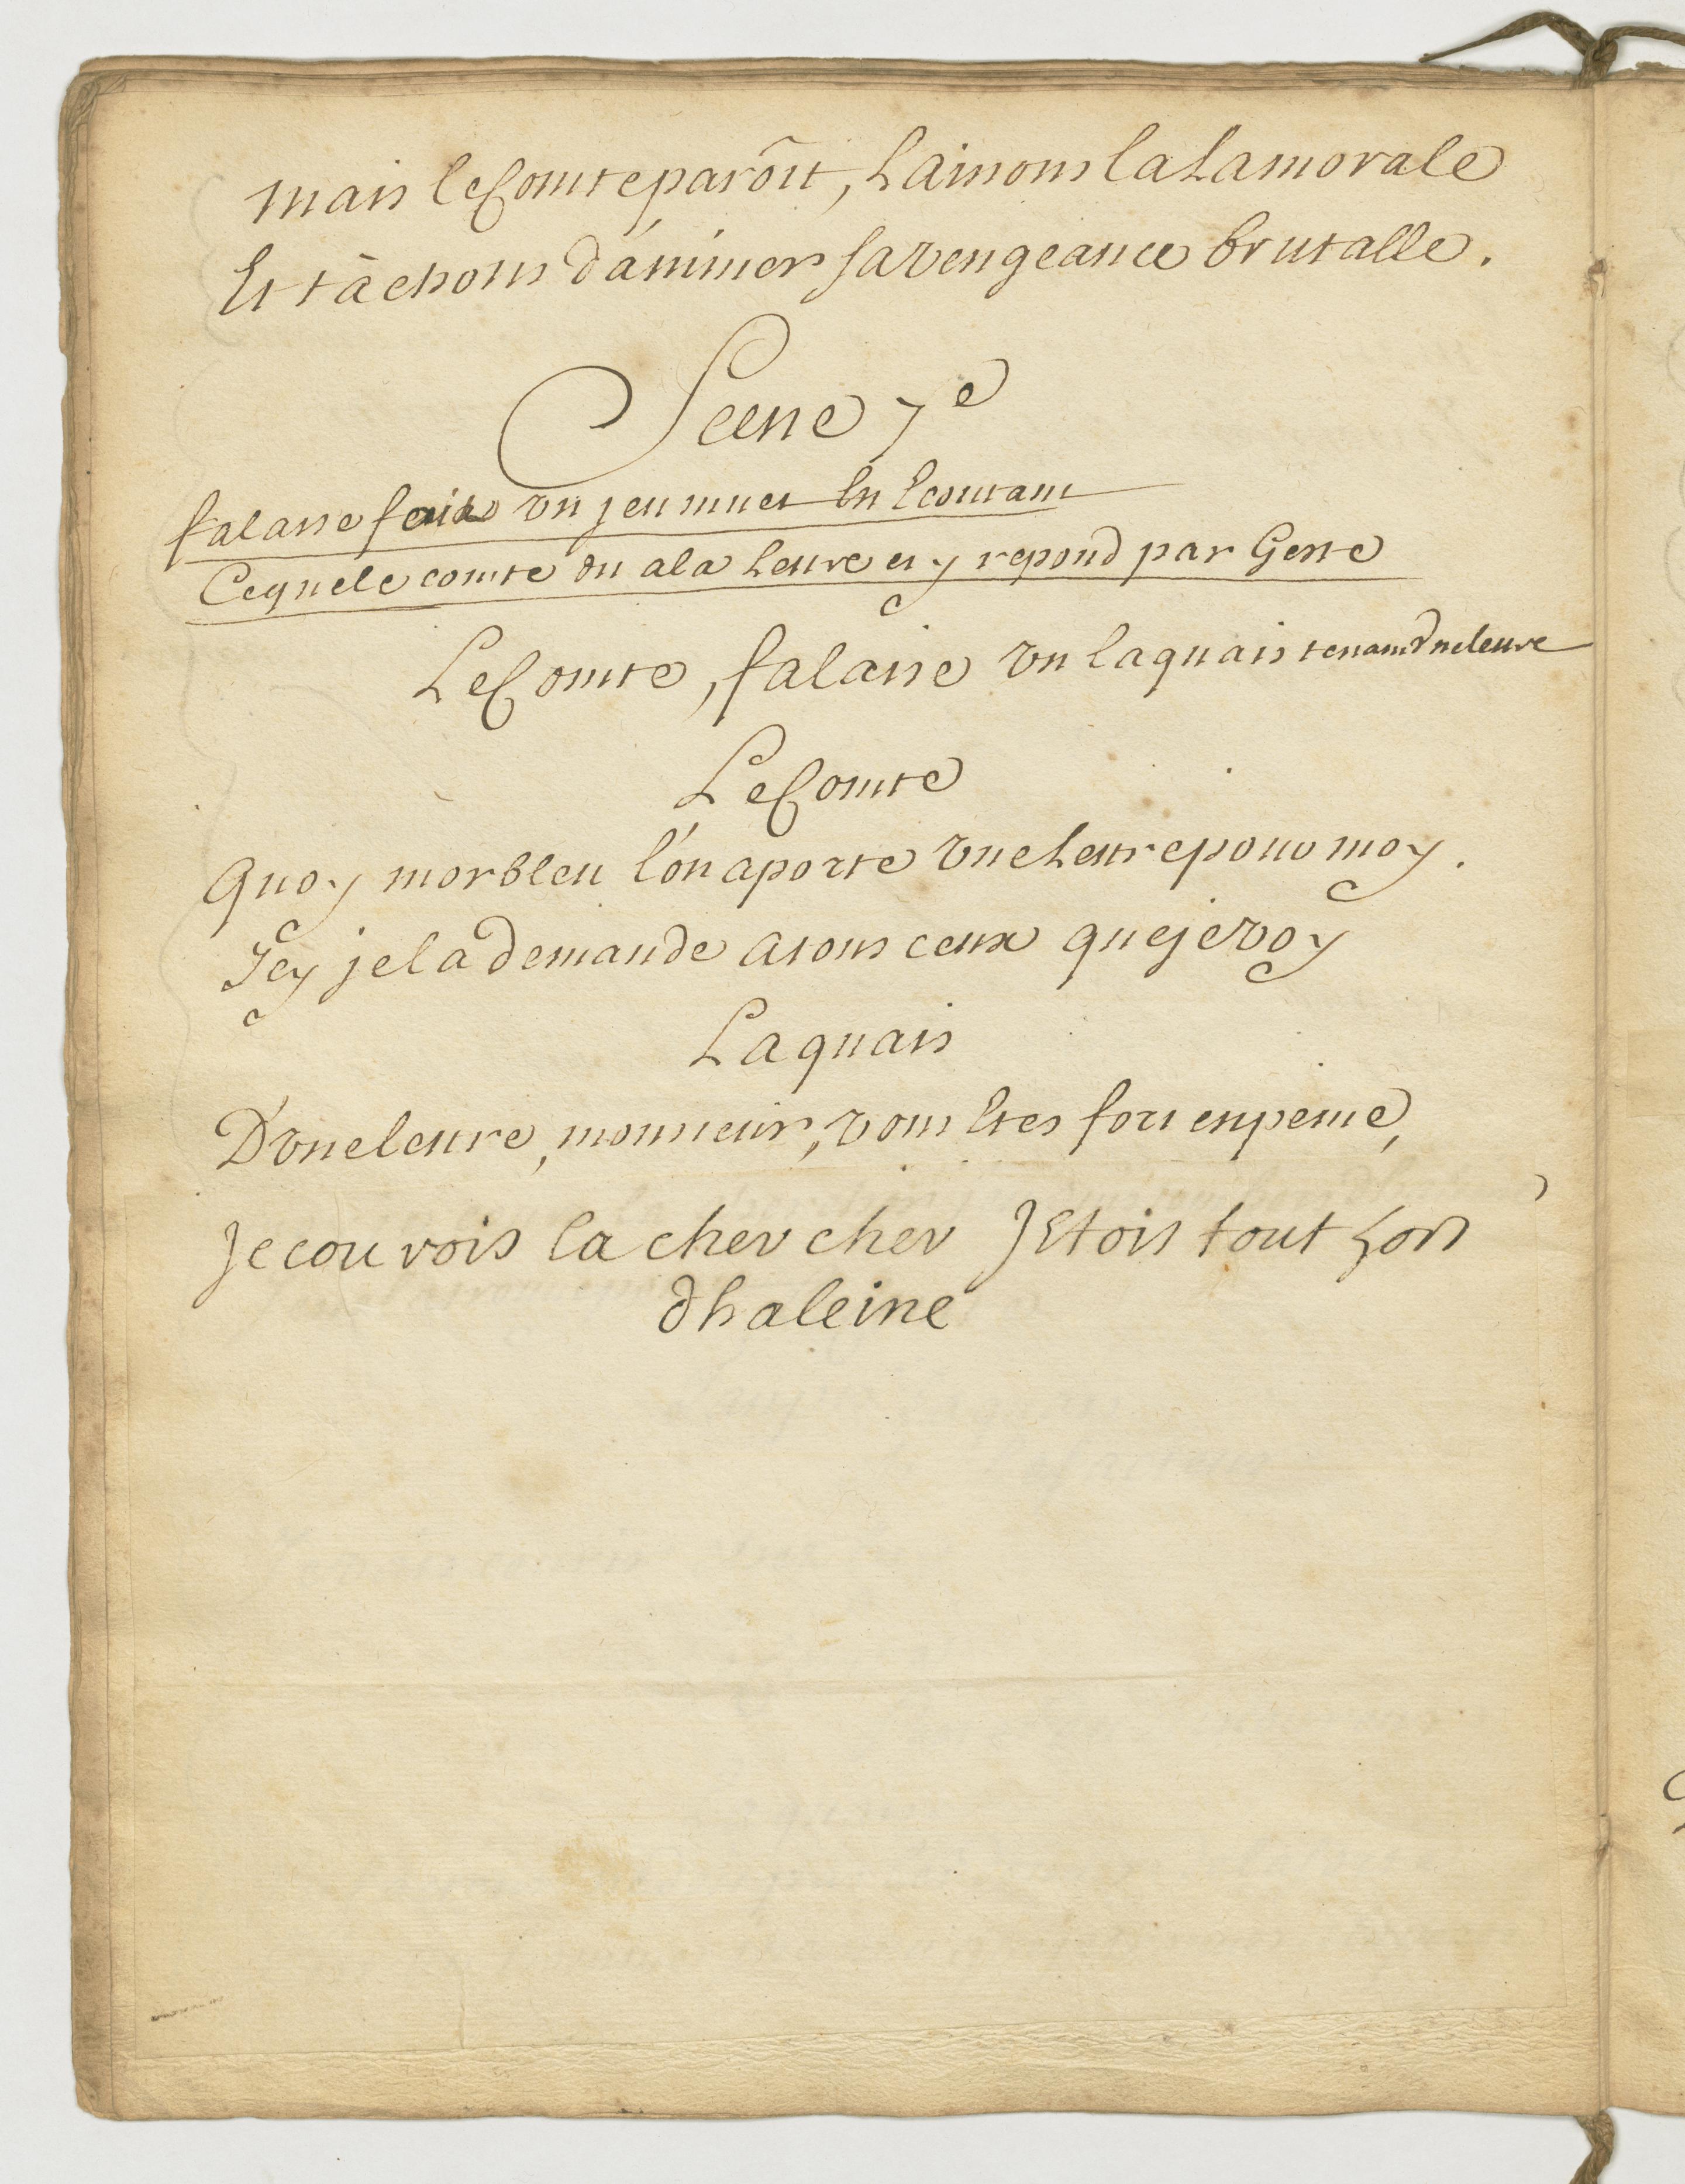 Mais le Comte parôit, Laissons la La morale
Et tâchons d'animer sa vengeance brutalle.
Scene 7e
falaise fait un jeu muet En Ecoutant
Ceque le comte dit a la Lettre et y repond par Geste
Le Comte, falaise un laquais tenant une lettre
Le Comte
Quoy morbleu l'on aporte une Lettre pour moy.
Icy je la demande a tous ceux que je voy
Laquais
D'une lettre, monsieur, vous Etes fort en peine,
Je courois la chercher J'Etois tout hors
dhaleine